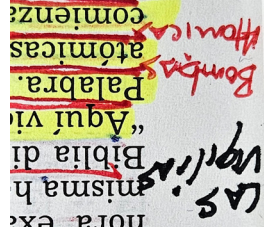 hora exa
misma h
Biblia di
“Aquí vi
Palabra.
atómicas
comienza
LAS
vigilias
Bombas
Atomicas